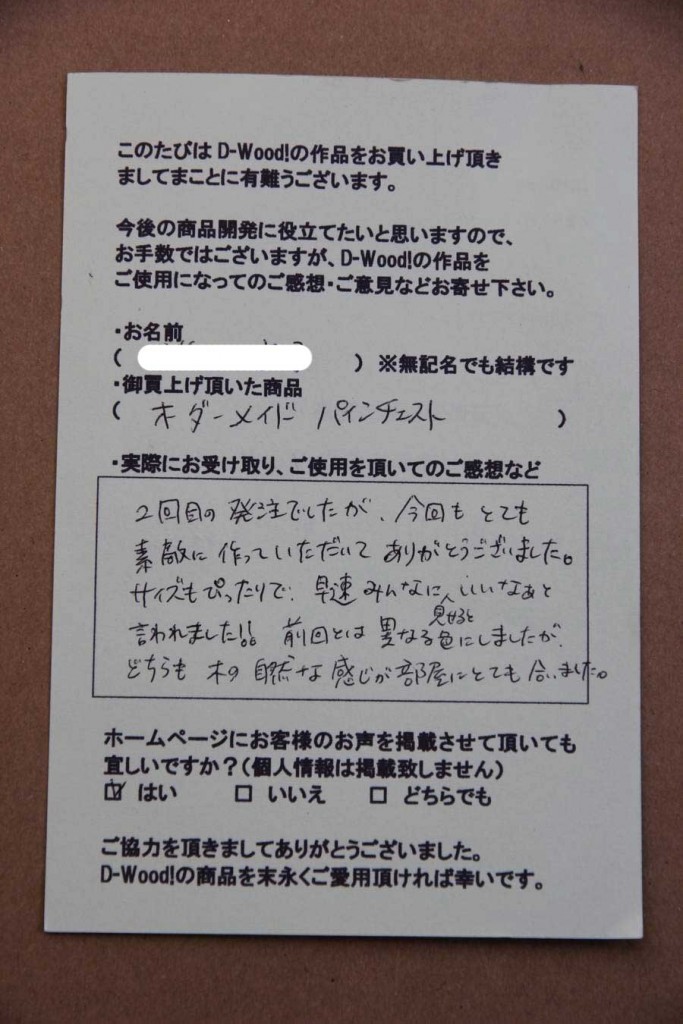 このたびは D-Wood!の作品をお買い上げ頂き
ましてまことに有難うございます。
今後の商品開発に役立てたいと思いますので、
お手数ではございますが、D-Wood!の作品を
ご使用になってのご感想・ご意見などお寄せ下さい。
・お名前
( ) ※無記名でも結構です
・御買上げ頂いた商品
( オダーメイド パインチェスト )
・実際にお受け取り、ご使用を頂いてのご感想など
2回目の 発注でしたが、今回も とても
素敵に 作っていただいて ありがとうございました。
サイズもぴったりで、早速 みんなに見せると いいなぁと
言われました!! 前回とは 異なる色にしましたが、
どちらも 木の 自然な 感じが部屋にとても 合いました。
ホームページにお客様のお声を掲載させて頂いても
宜しいですか?(個人情報は掲載致しません)
☑ はい □ いいえ □ どちらでも
ご協力を頂きましてありがとうございました。
D-Wood!の商品を末永くご愛用頂ければ幸いです。